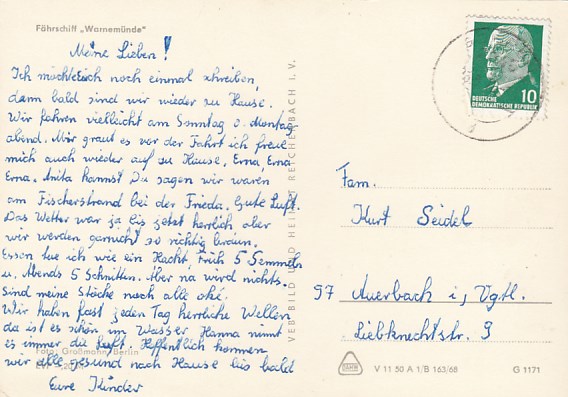 Fährschiff „Warnemünde"
Meine Lieben!
Ich möchte Euch noch einmal schreiben,
denn bald sind wir wieder zu Hause.
Wir fahren vielleicht am Sonntag o. Montag
abend. Mir graut es vor der Fahrt ich freue
mich auch wieder auf zu Hause, Erna, Erna
Erna. Anita kannst Du sagen wir waren
am Fischerstrand bei der Frieda. Gute Luft.
Das Wetter war ja bis jetzt herrlich aber
wir werden garnicht so richtig braun.
Essen tue ich wie ein Hacht, früh 5 Semmeln
u. Abends 5 Schnitten. Aber na wird nichts.
Sind meine Stöcke noch alle oké.
Wir haben fast jeden Tag herrliche Wellen
da ist es schön im Wasser Hanna nimmt
es immer die Luft. Hoffentlich kommen
wir alle gesund nach Hause bis bald
Eure Kinder
Foto: Großmann, Berlin
VEB BILD UND HEIMAT REICHENBACH I. V.
10
DEUTSCHE
DEMOKRATISCHE REPUBLIK
Fam.
Kurt Seidel
97 Auerbach i, Vgtl.
Liebknechtstr. 9
V 11 50 A 1/B 163/68
G 1171